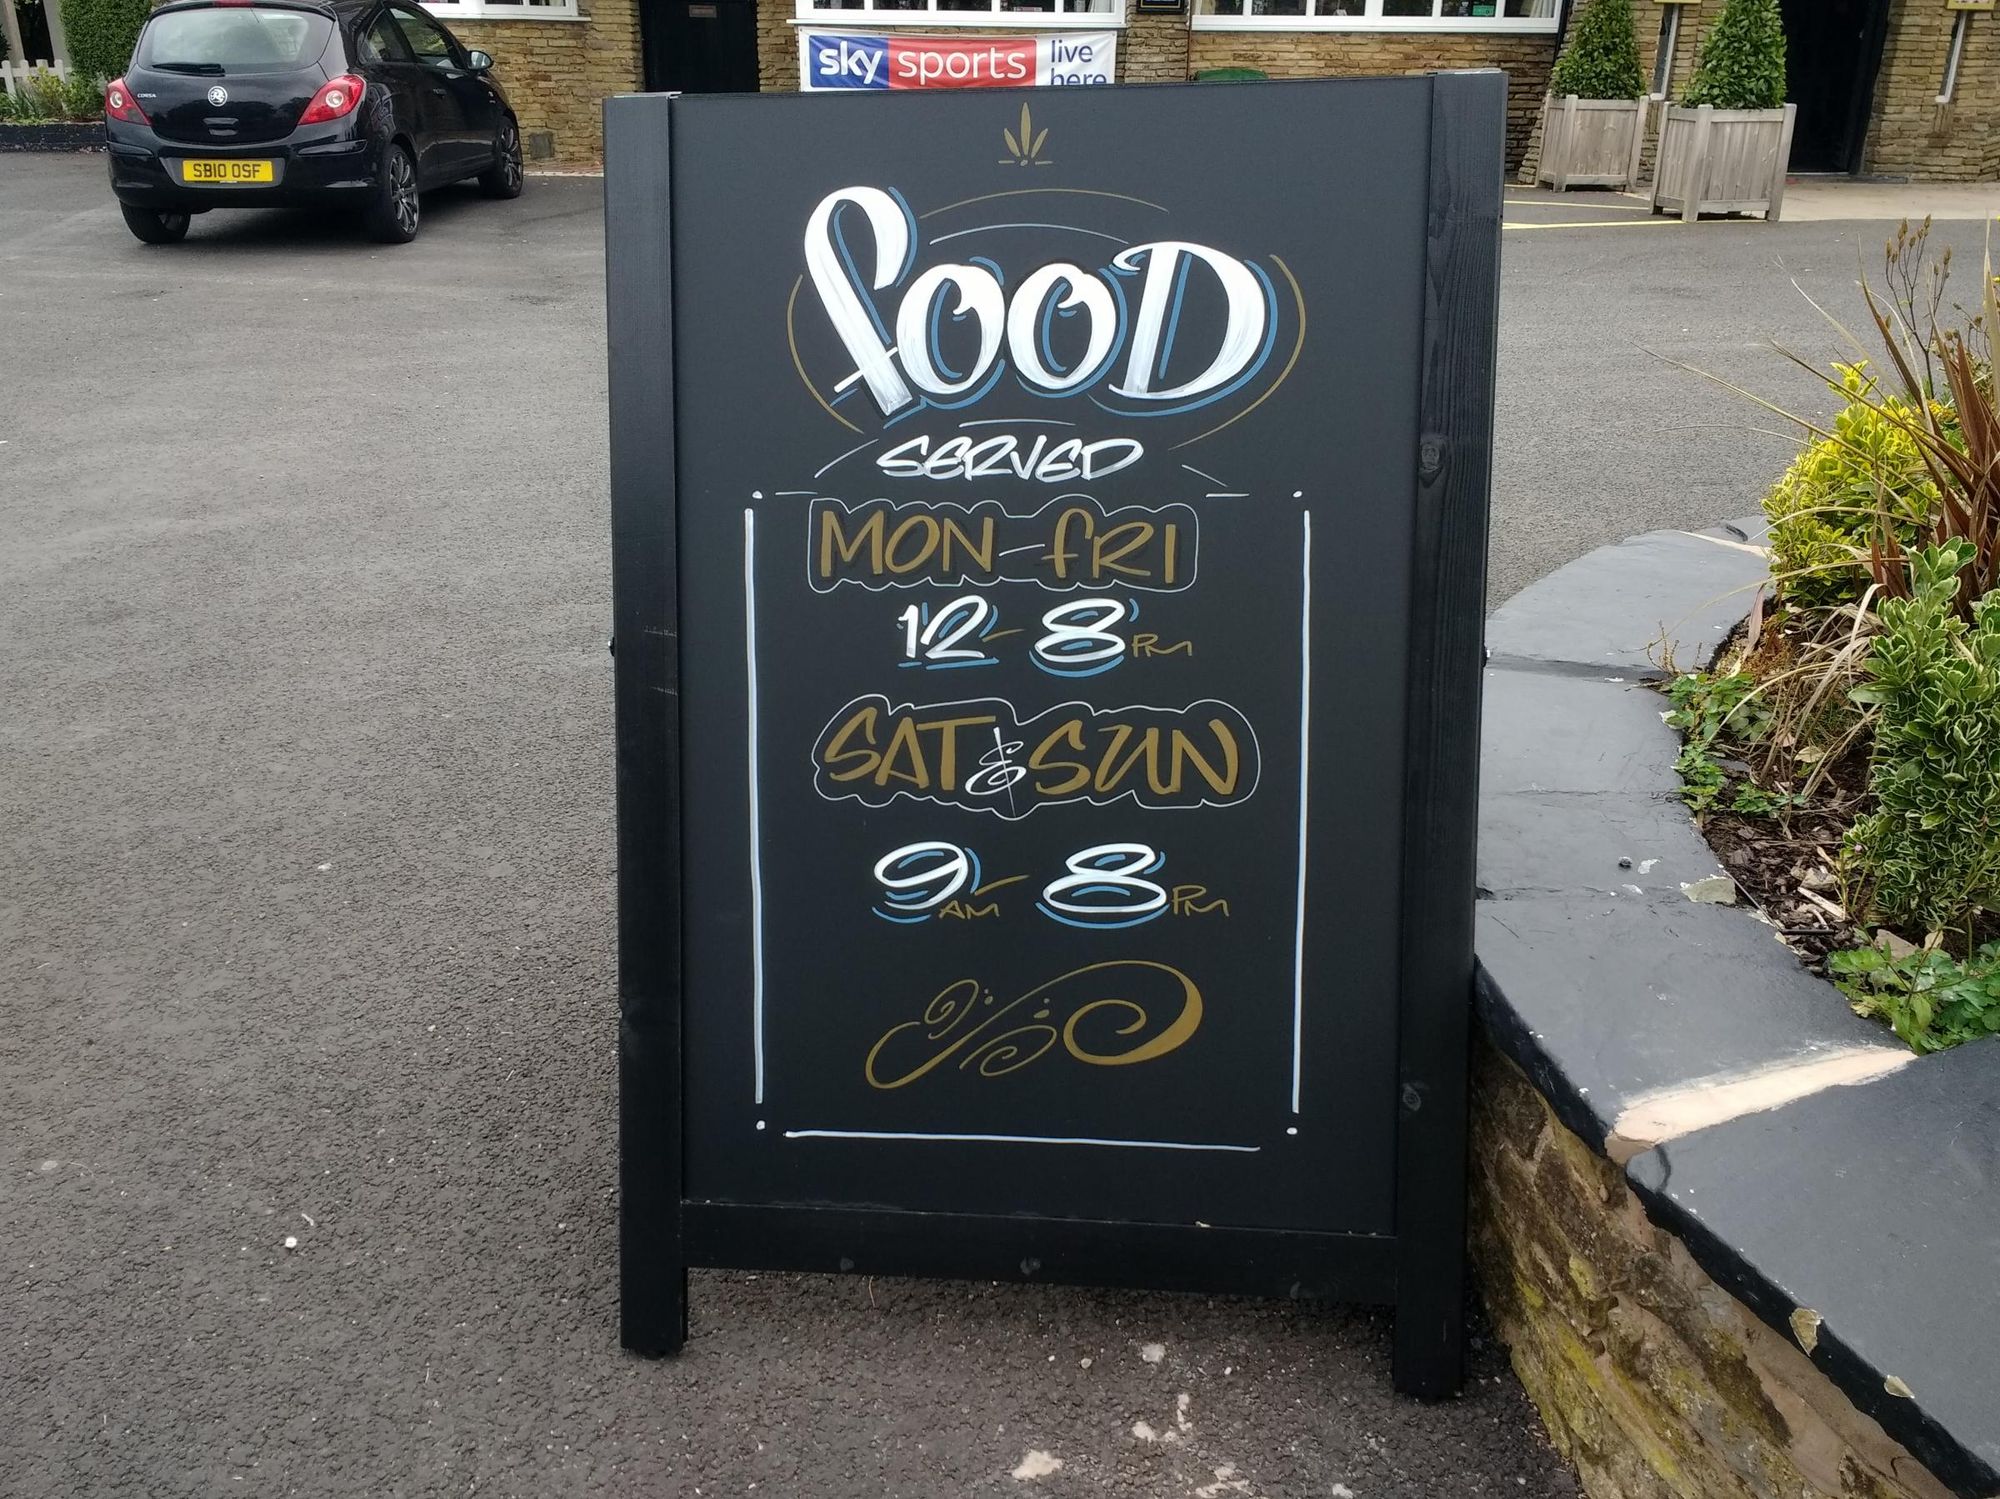 sky sports live
here
CORSA
SB10 OSF
fooD
SERVED
MON-fRI
12-8PM
SAT & SUN
9AM-8PM